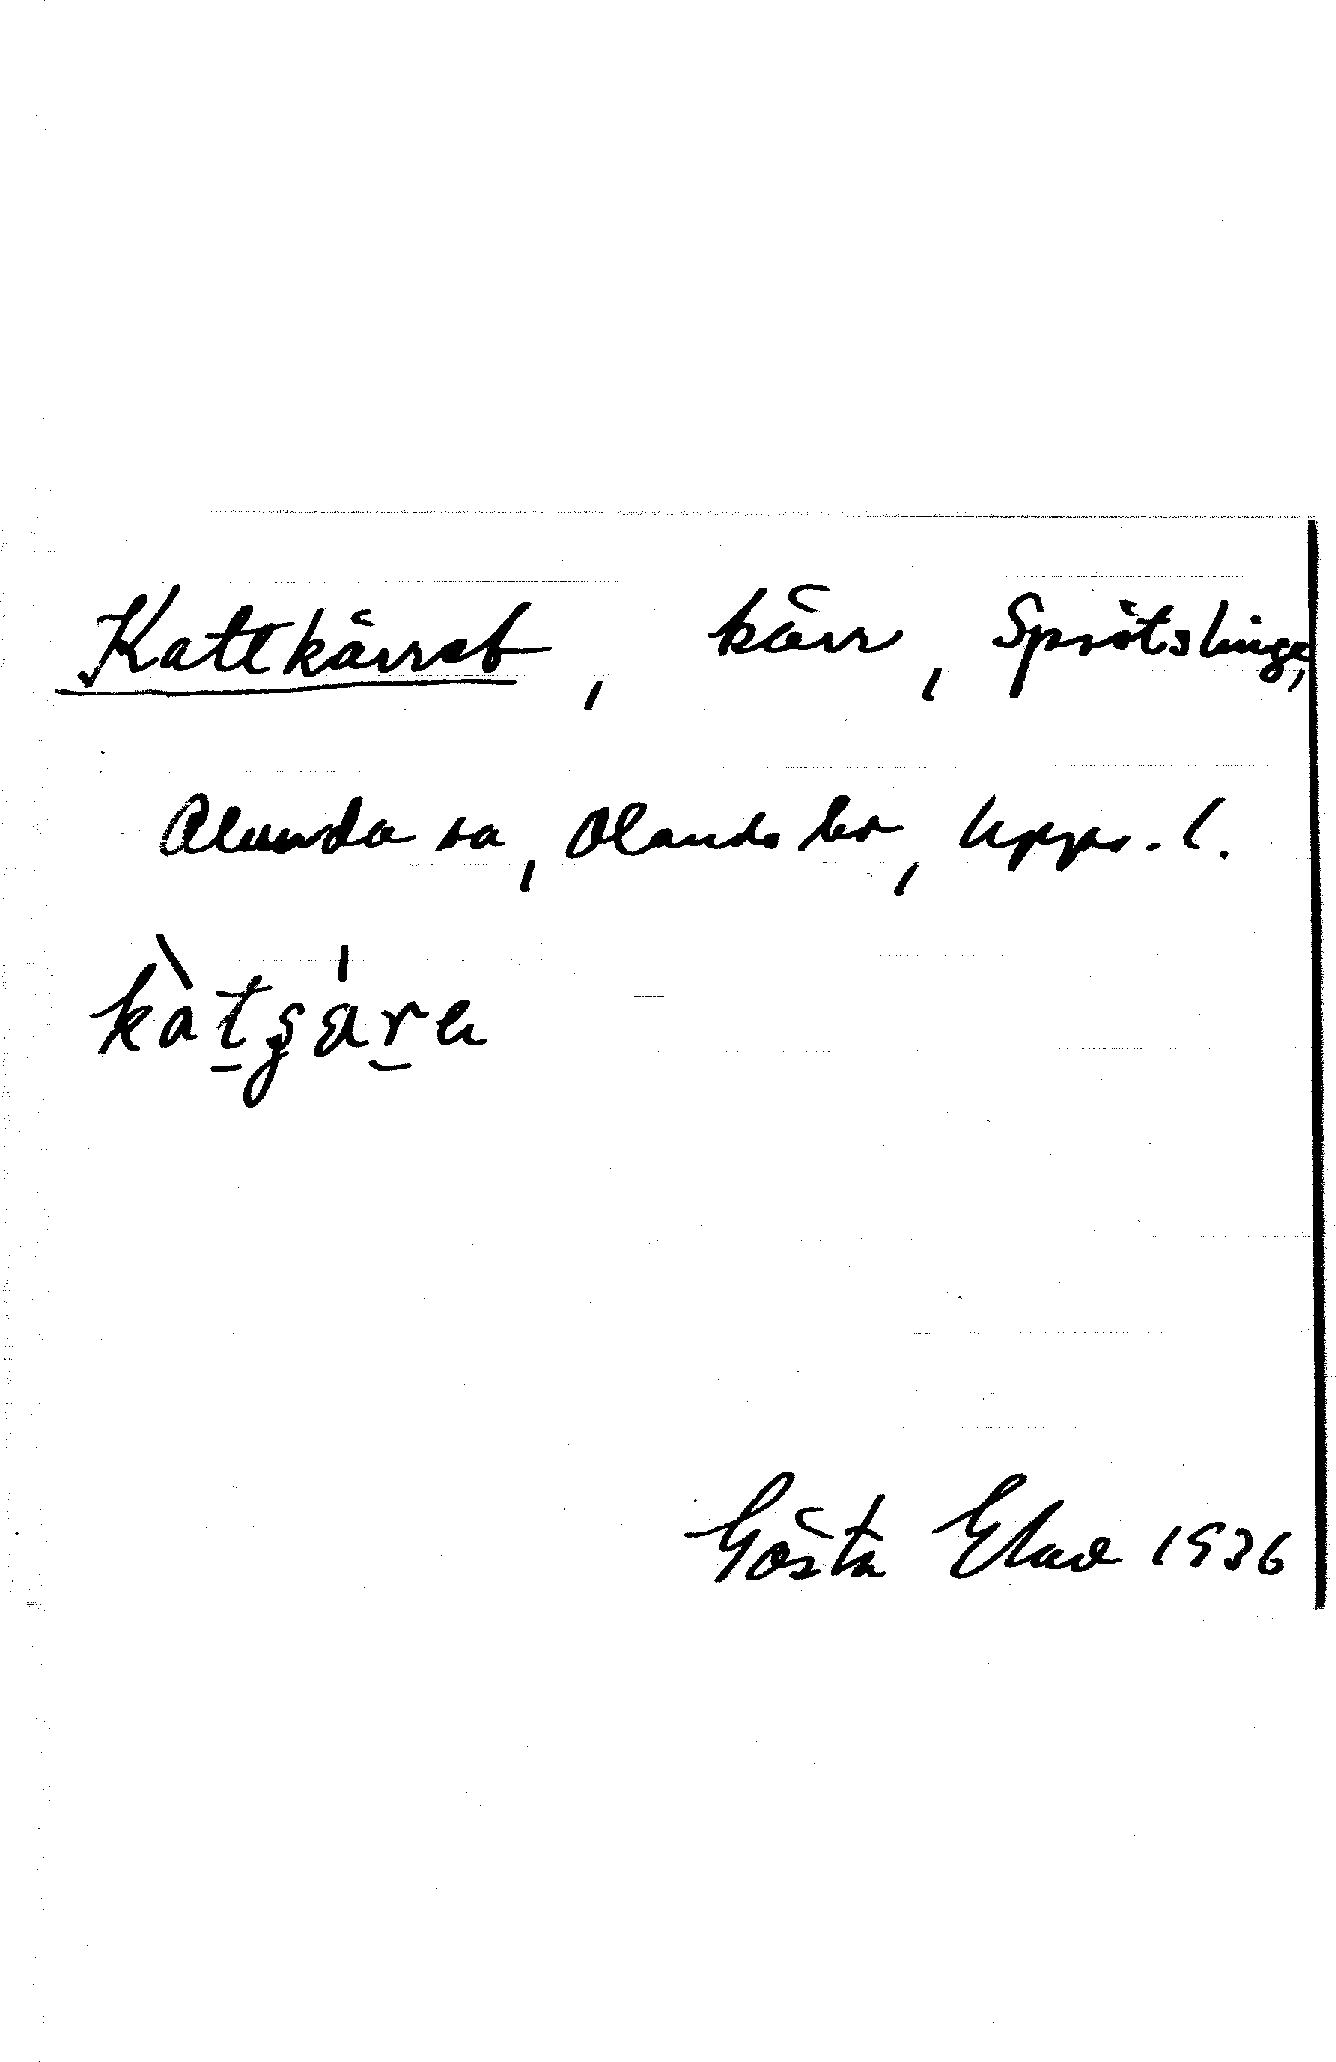 Kattkärret, kärr, Sprötslinge,
Alunda sn, Olands hd, Upps. l.
kàtʂä́ra
Gösta Elav 1936